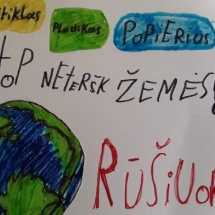 tiklas Plastikas POPIERIUS
TOP NETERŠK ŽEMĖS!
RŪŠIUO